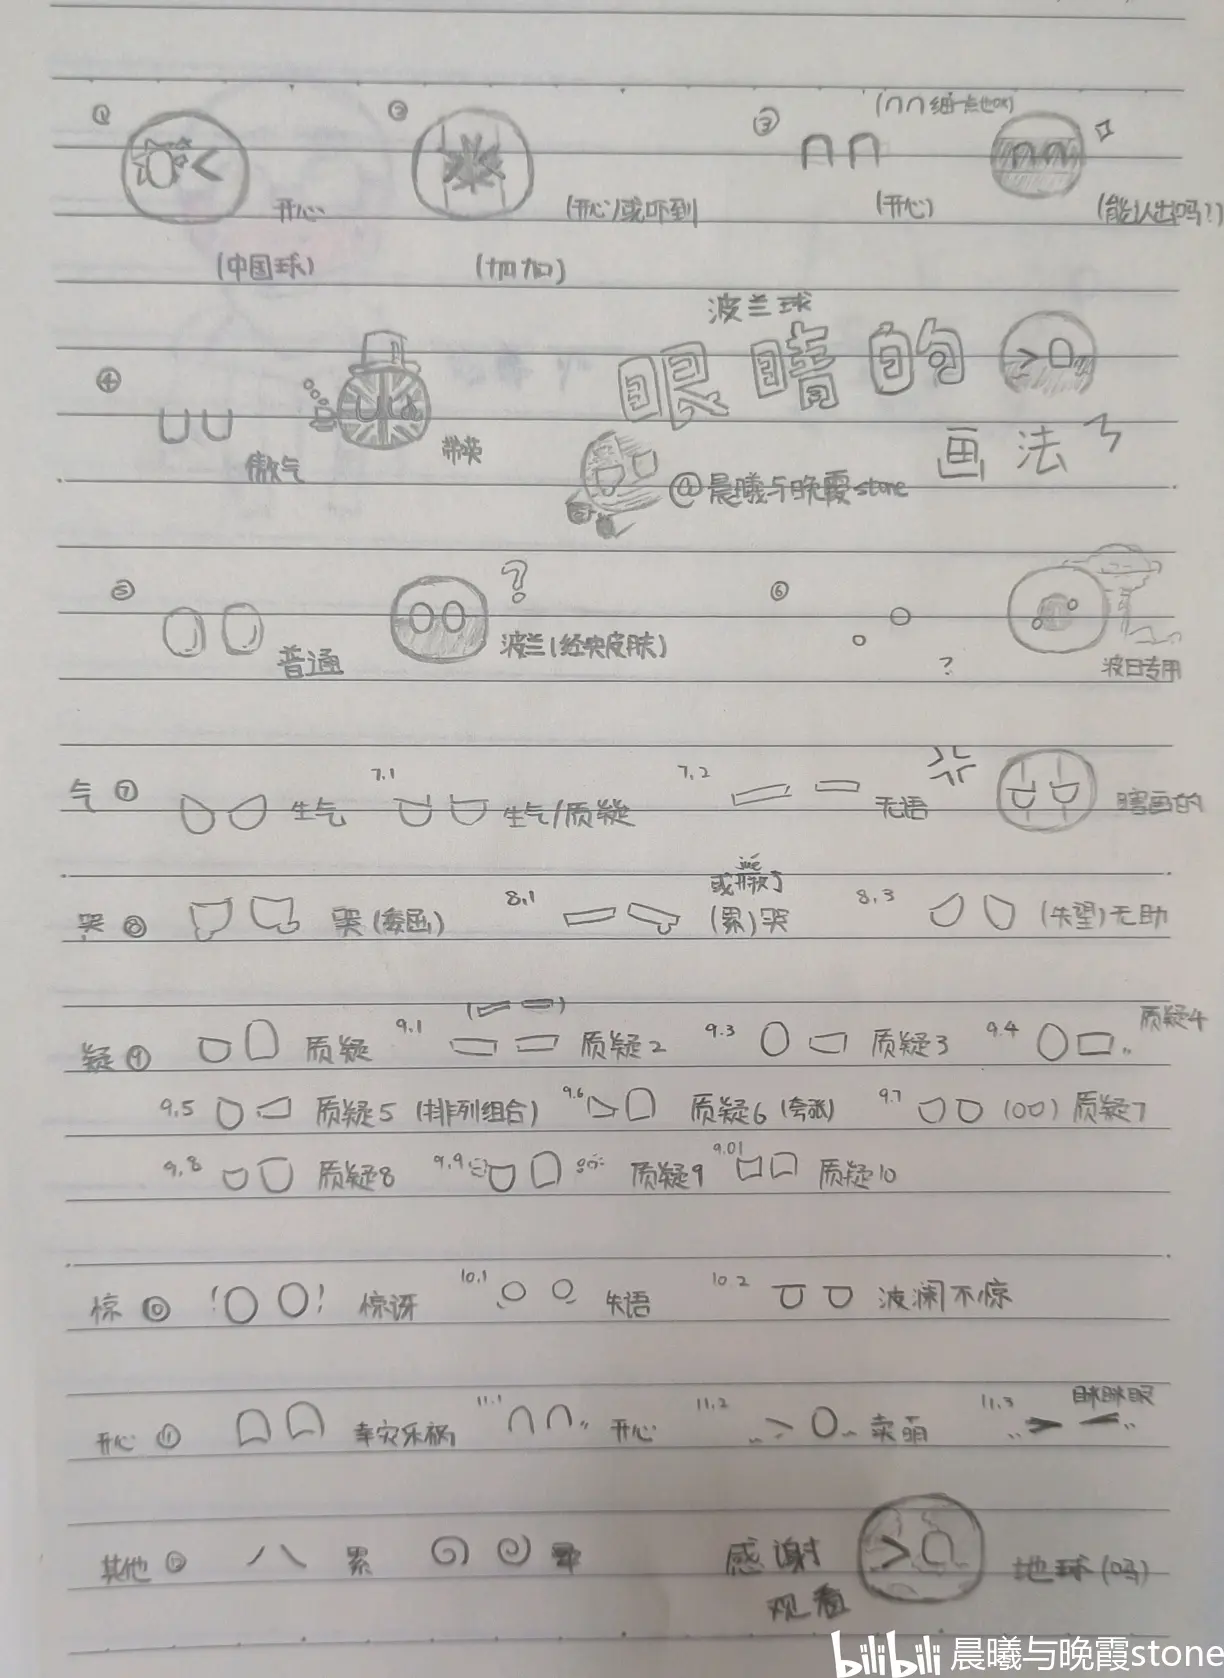 ① ② ③ (∩∩细一点也OK)
开心 (开心)或吓到 (开心) (能认出吗?)
(中国球) (加加)
波兰球
④ 眼睛的
傲气 带英 画法
@晨曦与晚霞stone
⑤ ? ⑥
普通 波兰(经典皮肤) ? 波日专用
气⑦ 生气 7.1 生气/质疑 7.2 无语 瞎画的
哭⑧ 哭(委屈) 8.1 (累)哭 8.3 (失望)无助
疑⑨ 质疑 9.1 质疑2 9.3 质疑3 9.4 质疑4
9.5 质疑5 (排列组合) 9.6 质疑6 (夸张) 9.7 (00) 质疑7
9.8 质疑8 9.9 质疑9 9.01 质疑10
惊⑩ ! ! 惊讶 10.1 失语 10.2 波澜不惊
开心⑪ 幸灾乐祸 11.1 开心 11.2 卖萌 11.3 眯眯眼
其他⑫ 累 感谢 地球(吗)
观看
bilibili 晨曦与晚霞stone